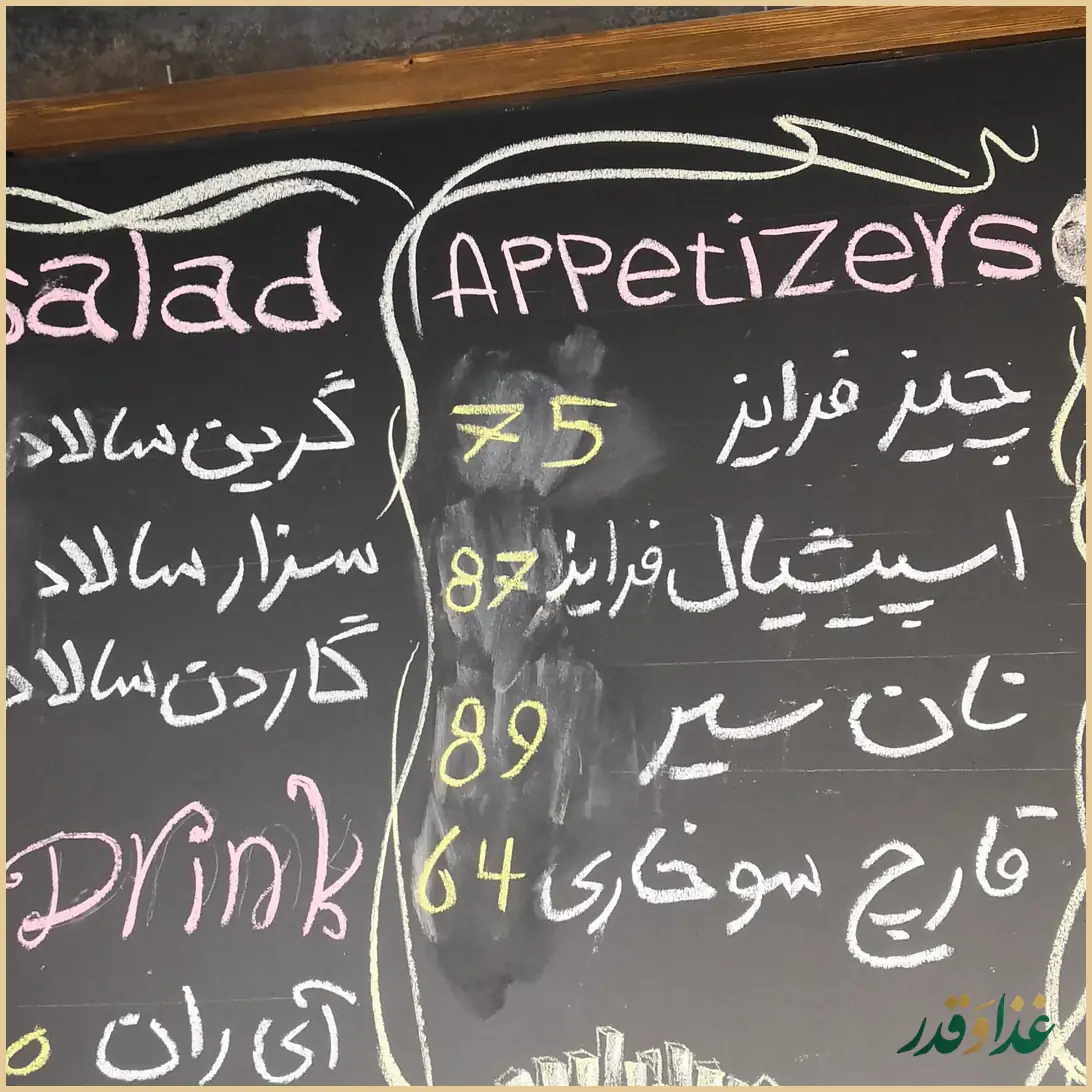 Appetizers
چیز فرایز 75
اسپیشیال فرایز 87
نان سیر 89
قارچ سوخاری 64
salad
گرین سالاد
سزار سالاد
گاردن سالاد
Drink
آی ران
غذا و قدر